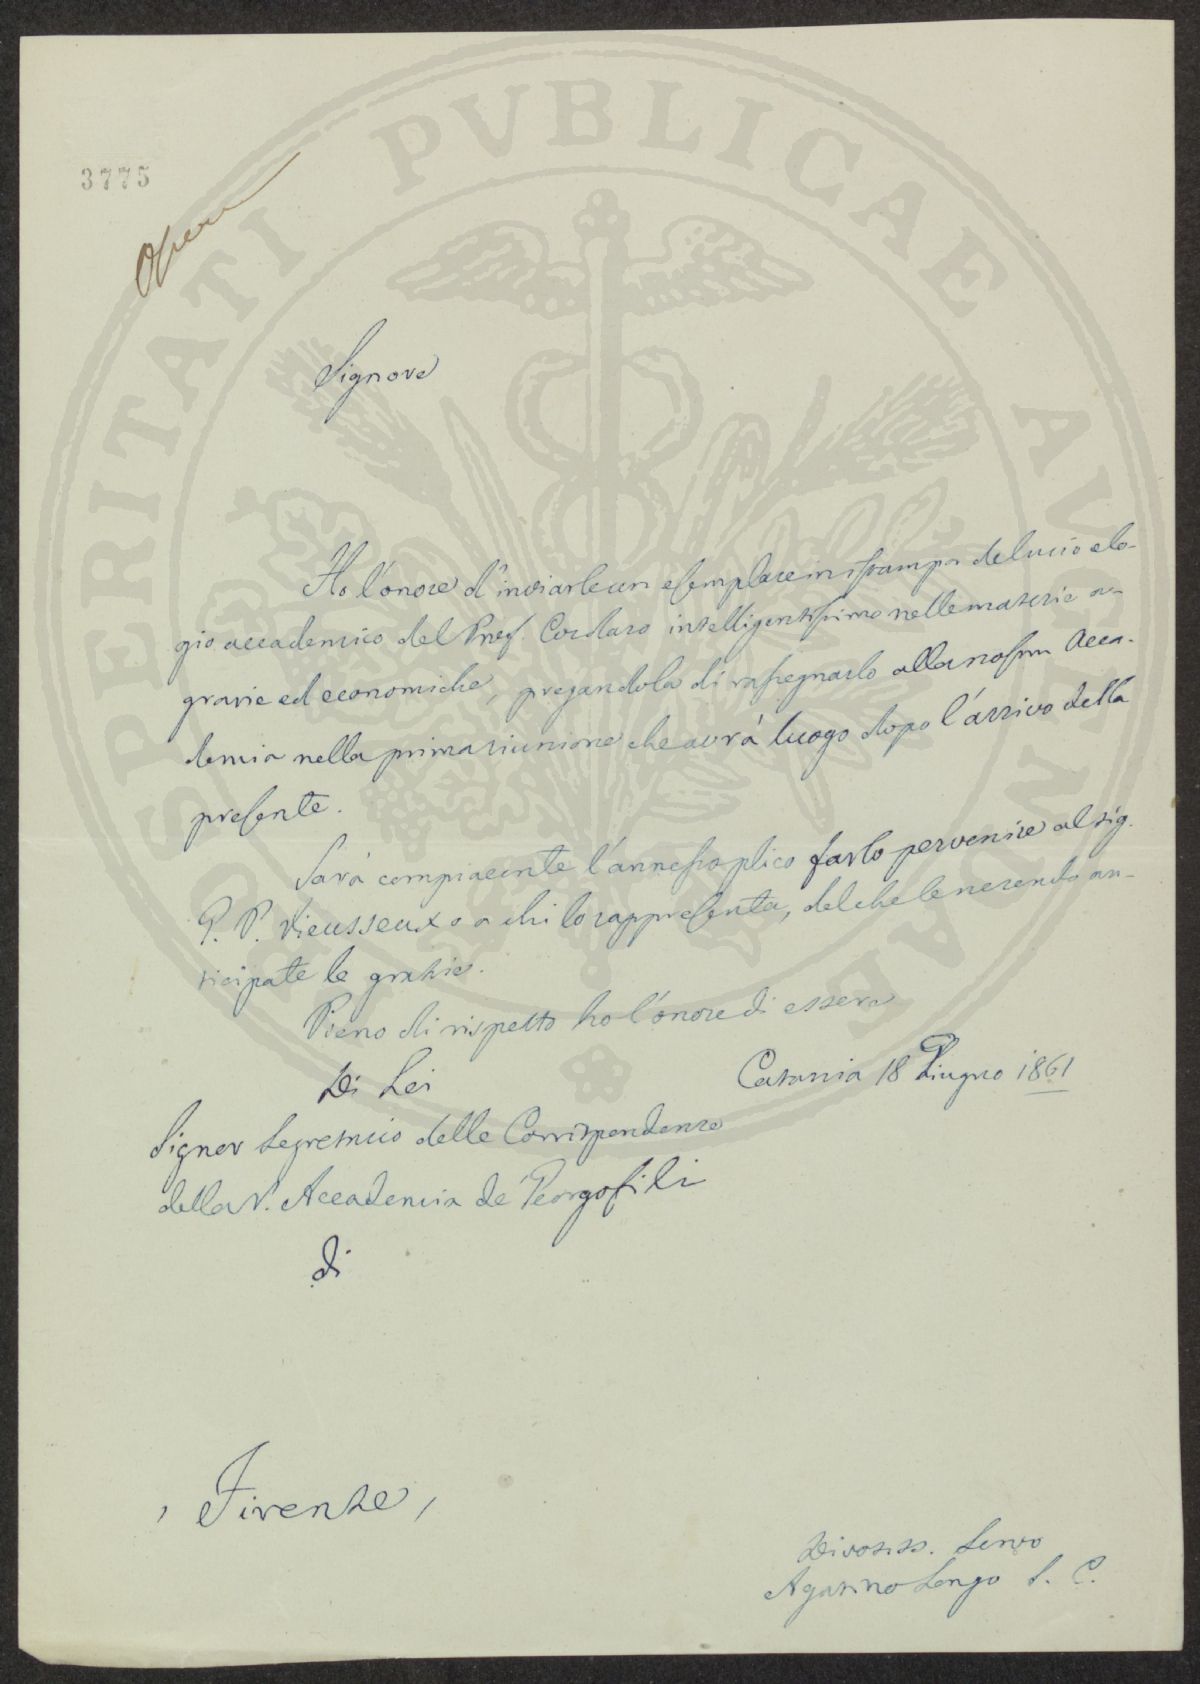 PROSPERITATI PVBLICAE AVGENDAE
3775
Opere
Signore
Ho l'onore d'inviarle un esemplare in istampa del mio elo-
gio accademico del Prof. Cordaro intelligentissimo nelle materie a-
grarie ed economiche, pregandola di rassegnarlo alla nostra Acca-
demia nella prima riunione che avrà luogo dopo l'arrivo della
presente.
Sarà compiacente l'annesso plico farlo pervenire al sig.
G. P. Vieusseux o a chi lo rappresenta, del che le ne rendo an-
ticipate le grazie.
Pieno di rispetto ho l'onore di essere
Di Lei
Catania 18 Giugno 1861
Signor Segretario delle Corrispondenze
della R. Accademia de' Georgofili
di
Firenze
Divotiss. Servo
Agatino Longo S. C.